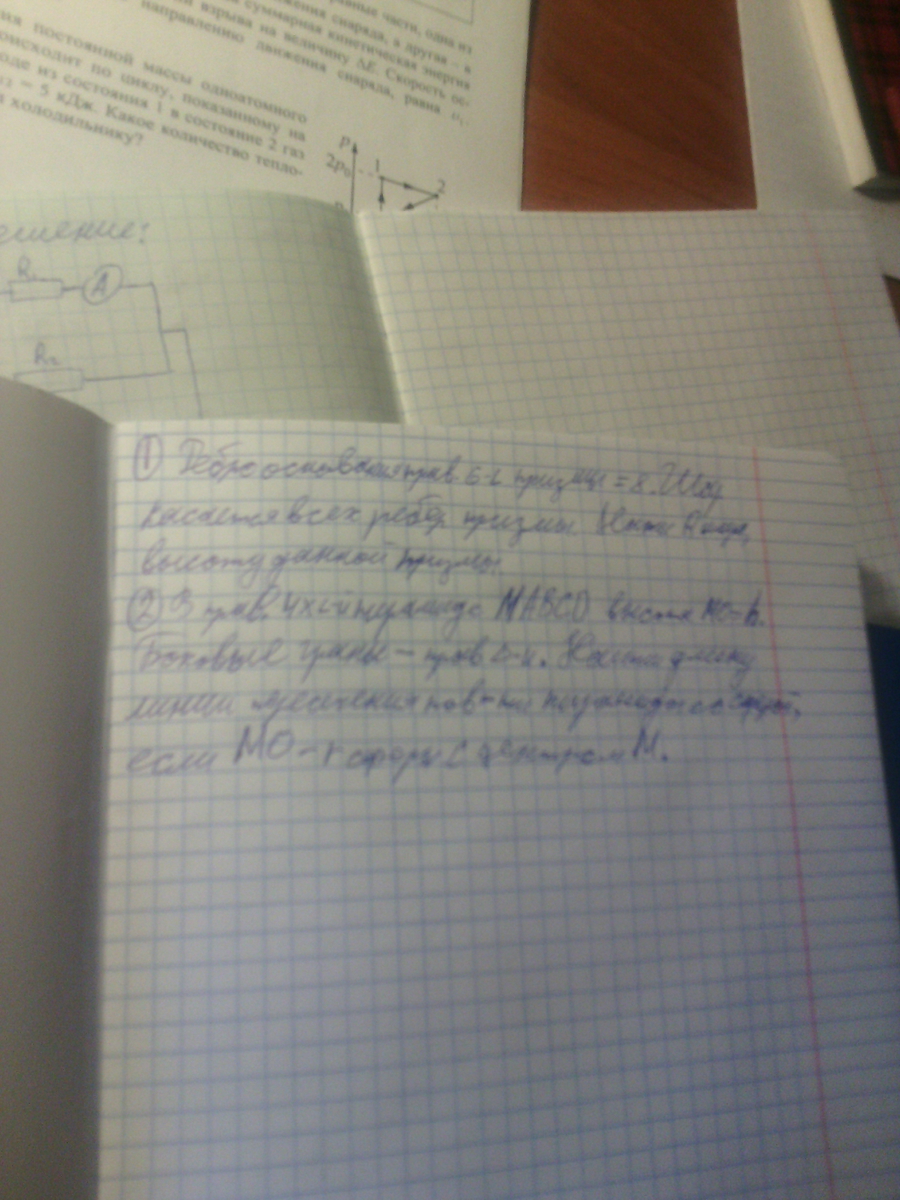 ные части, одна из
жения снаряда, а другая – в
суммарная кинетическая энергия
взрыва на величину ΔE. Скорость ос-
направлению движения снаряда, равна v₁.
ия постоянной массы одноатомного
оисходит по циклу, показанному на
оде из состояния 1 в состояние 2 газ
= 5 кДж. Какое количество тепло-
холодильнику?
p
2p₀
1
2
ешение:
R₁
A
R₂
① Ребро основания прав 6-й призмы = 8. Шар
касается всех рёбер призмы. Найти R шара,
высоту данной призмы.
② В прав. 4х-й пирамиде MABCD высота MO-h.
Боковые грани – прав Δ-и. Найти длину
линии пересечения пов-ти пирамиды со сферой,
если MO – r сферы с центром M.